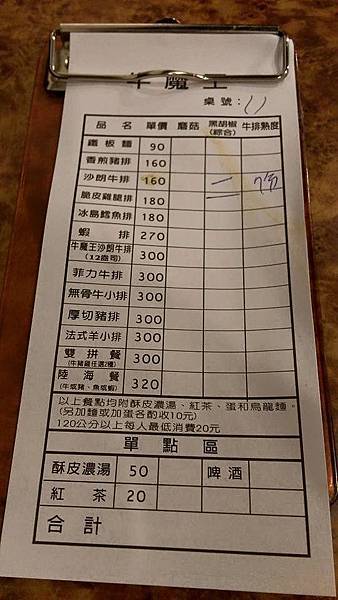 牛魔王
桌號：11
品名 單價 蘑菇 黑胡椒(綜合) 牛排熟度
鐵板麵 90
香煎豬排 160
沙朗牛排 160 二
脆皮雞腿排 180
冰島鱈魚排 180
蝦排 270
牛魔王沙朗牛排(12盎司) 300
菲力牛排 300
無骨牛小排 300
厚切豬排 300
法式羊小排 300
雙拼餐(牛豬雞任選2種) 300
陸海餐(牛或豬、魚或蝦) 320
以上餐點均附酥皮濃湯、紅茶、蛋和烏龍麵。
(另加麵或加蛋各酌收10元)
120公分以上每人最低消費20元
單點區
酥皮濃湯 50 啤酒
紅茶 20
合計